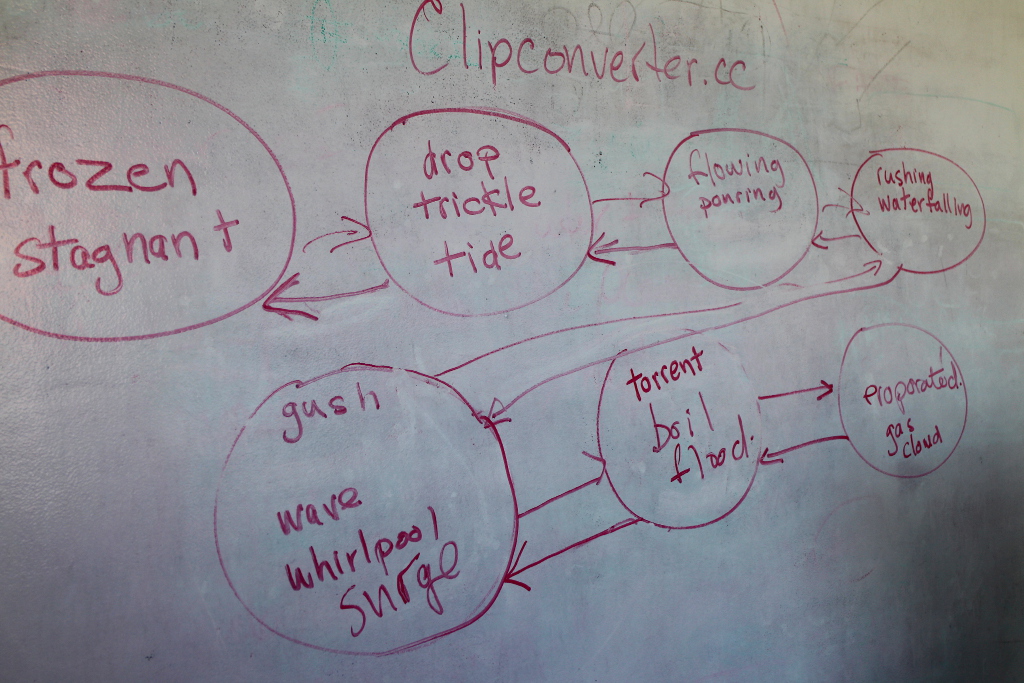 Clipconverter.cc
frozen
stagnant
drop
trickle
tide
flowing
pouring
rushing
waterfalling
gush
wave
whirlpool
surge
torrent
boil
flood.
evoporated.
gas
cloud